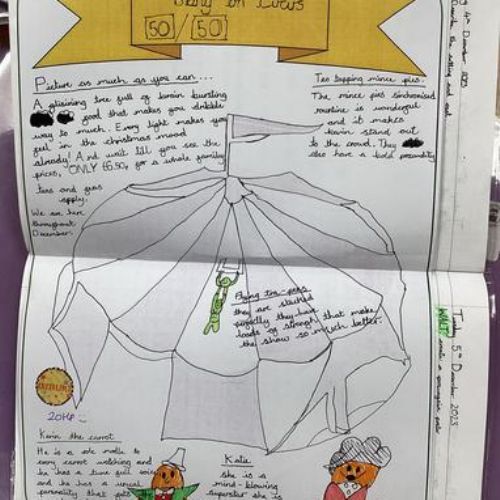 50/50
Picture as much as you can...
A glistening tree full of brain bursting
good that makes you dribble
way to much. Every light makes you
feel in the christmas mood
already! And wait till you see the
prices, ONLY £6.50, for a whole family
tens and gens
apply.
We are here
throughout
December.
Ten tapping mince pies.
The mince pies sinchronised
routine is wonderful
and it makes
kevin stand out
to the crowd. They
also have a bold personality
Flying tra-peas
they are stacked
perfectly they have that make
loads of strength
the show so much better.
20HP
Kevin the carrot
He is a sole male to
every carrot watching and
he has a fine full voice
and he has a unreal
personality that gets
Katie
She is a
mind-blowing
superstar she is
4th December 2023
Describe the setting and
Tuesday 5th December 2023
WALT